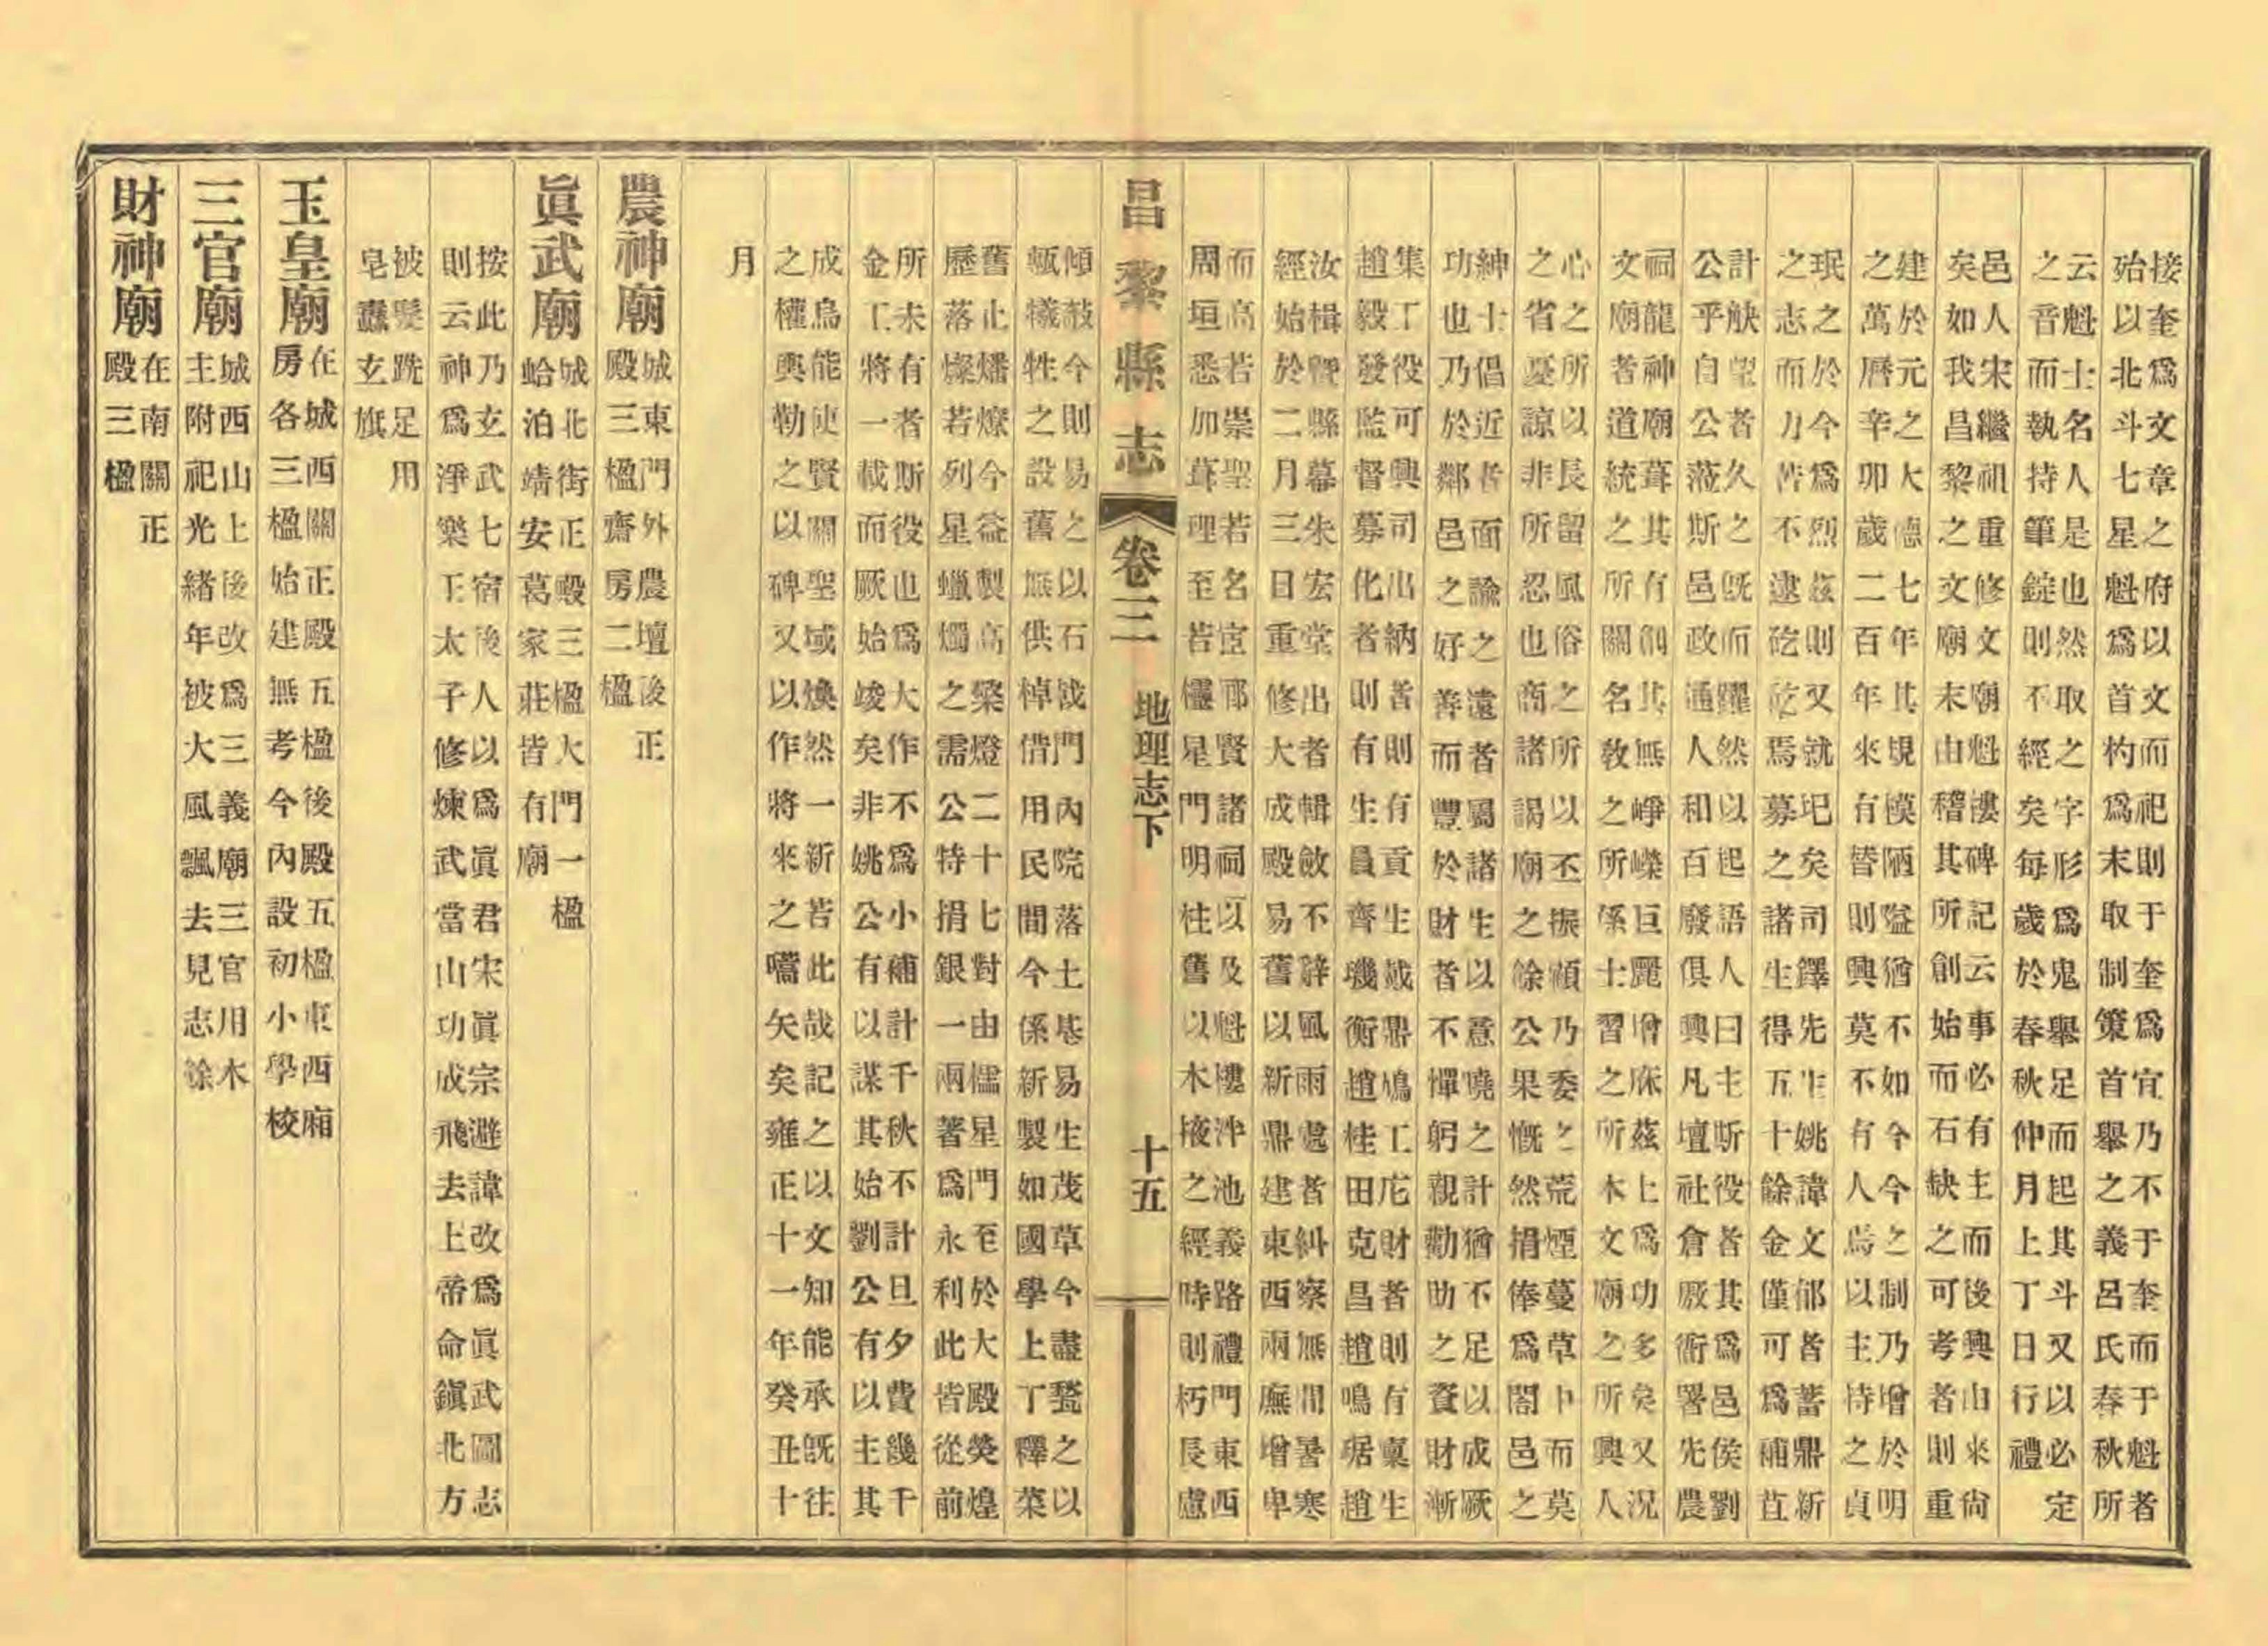 接奎為文章之府以文而祀則于奎為宜乃不于奎而于魁者
殆以北斗七星魁為首杓為末取制策首舉之義呂氏春秋所
云魁士名人是也然取之字形為鬼舉足而起其斗又以必定
之音而執持筆錠則不經矣每歲於春秋仲月上丁日行禮
邑人宋繼祖重修文廟魁樓碑記云事必有主而後興由來尙
矣如我昌黎之文廟末由稽其所創始而石缺之可考者則重
建於元之大德七年其規模陋隘猶不如今今之制乃增於明
之萬曆辛卯歲二百年來有替則興莫不有人焉以主持之貞
珉之於今為烈茲則又就圮矣司鐸先生姚諱文郁者蓄鼎新
之志而力苦不逮矻矻焉募之諸生得五十餘金僅可為補苴
計觖望者久之旣而躍然以起語人曰主斯役者其為邑侯劉
公乎自公蒞斯邑政通人和百廢俱興凡壇社倉廒衙署先農
祠龍神廟葺其有創其無崢嶸巨麗增庥茲上為功多矣又況
文廟者道統之所關名敎之所係士習之所本文廟之所興人
心之所以長留風俗之所以丕振頓乃委之荒煙蔓草中而莫
之省憂諒非所忍也商諸謁廟之餘公果慨然捐俸為閤邑之
紳士倡近者面諭之遠者屬諸生以意曉之計猶不足以成厥
功也乃於鄰邑之好善而豐於財者不憚躬親勸助之資財漸
集工役可興司出納者則有貢生戴鼎鳩工庀財者則有稟生
趙毅發監督募化者則有生員齊璣衡趙桂田克昌趙鳴琚趙
汝楫暨縣幕朱宏堂出者輯斂不辭風雨處者糾察無間暑寒
經始於二月三日重修大成殿易舊以新鼎建東西兩廡增卑
而高若崇聖若名宦鄉賢諸祠以及魁樓泮池義路禮門東西
周垣悉加葺理至若欞星門明柱舊以木掖之經時則朽長慮
昌黎縣志 卷三 地理志下 十五
傾敧今則易之以石戟門內院落土基易生茂草今盡甃之以
甎犧牲之設舊無供棹借用民間今係新製如國學上丁釋菜
舊止燔燎今益製高檠燈二十七對由櫺星門至於大殿熒煌
歷落燦若列星蠟燭之需公特捐銀一兩著為永利此皆從前
所未有者斯役也為大作不為小補計千秋不計旦夕費幾千
金工將一載而厥始竣矣非姚公有以謀其始劉公有以主其
成烏能使賢關聖域煥然一新若此哉記之以文知能承旣往
之權輿勒之以碑又以作將來之嚆矢矣雍正十一年癸丑十
月
農神廟 城東門外農壇後正
殿三楹齋房二楹
眞武廟 城北街正殿三楹大門一楹
蛤泊靖安葛家莊皆有廟
按此乃玄武七宿後人以為眞君宋眞宗避諱改為眞武圖志
則云神為淨樂王太子修煉武當山功成飛去上帝命鎭北方
被髮跣足用
皂纛玄旗
玉皇廟 在城西關正殿五楹後殿五楹東西廂
房各三楹始建無考今內設初小學校
三官廟 城西山上後改為三義廟三官用木
主附祀光緒年被大風飄去見志餘
財神廟 在南關正
殿三楹